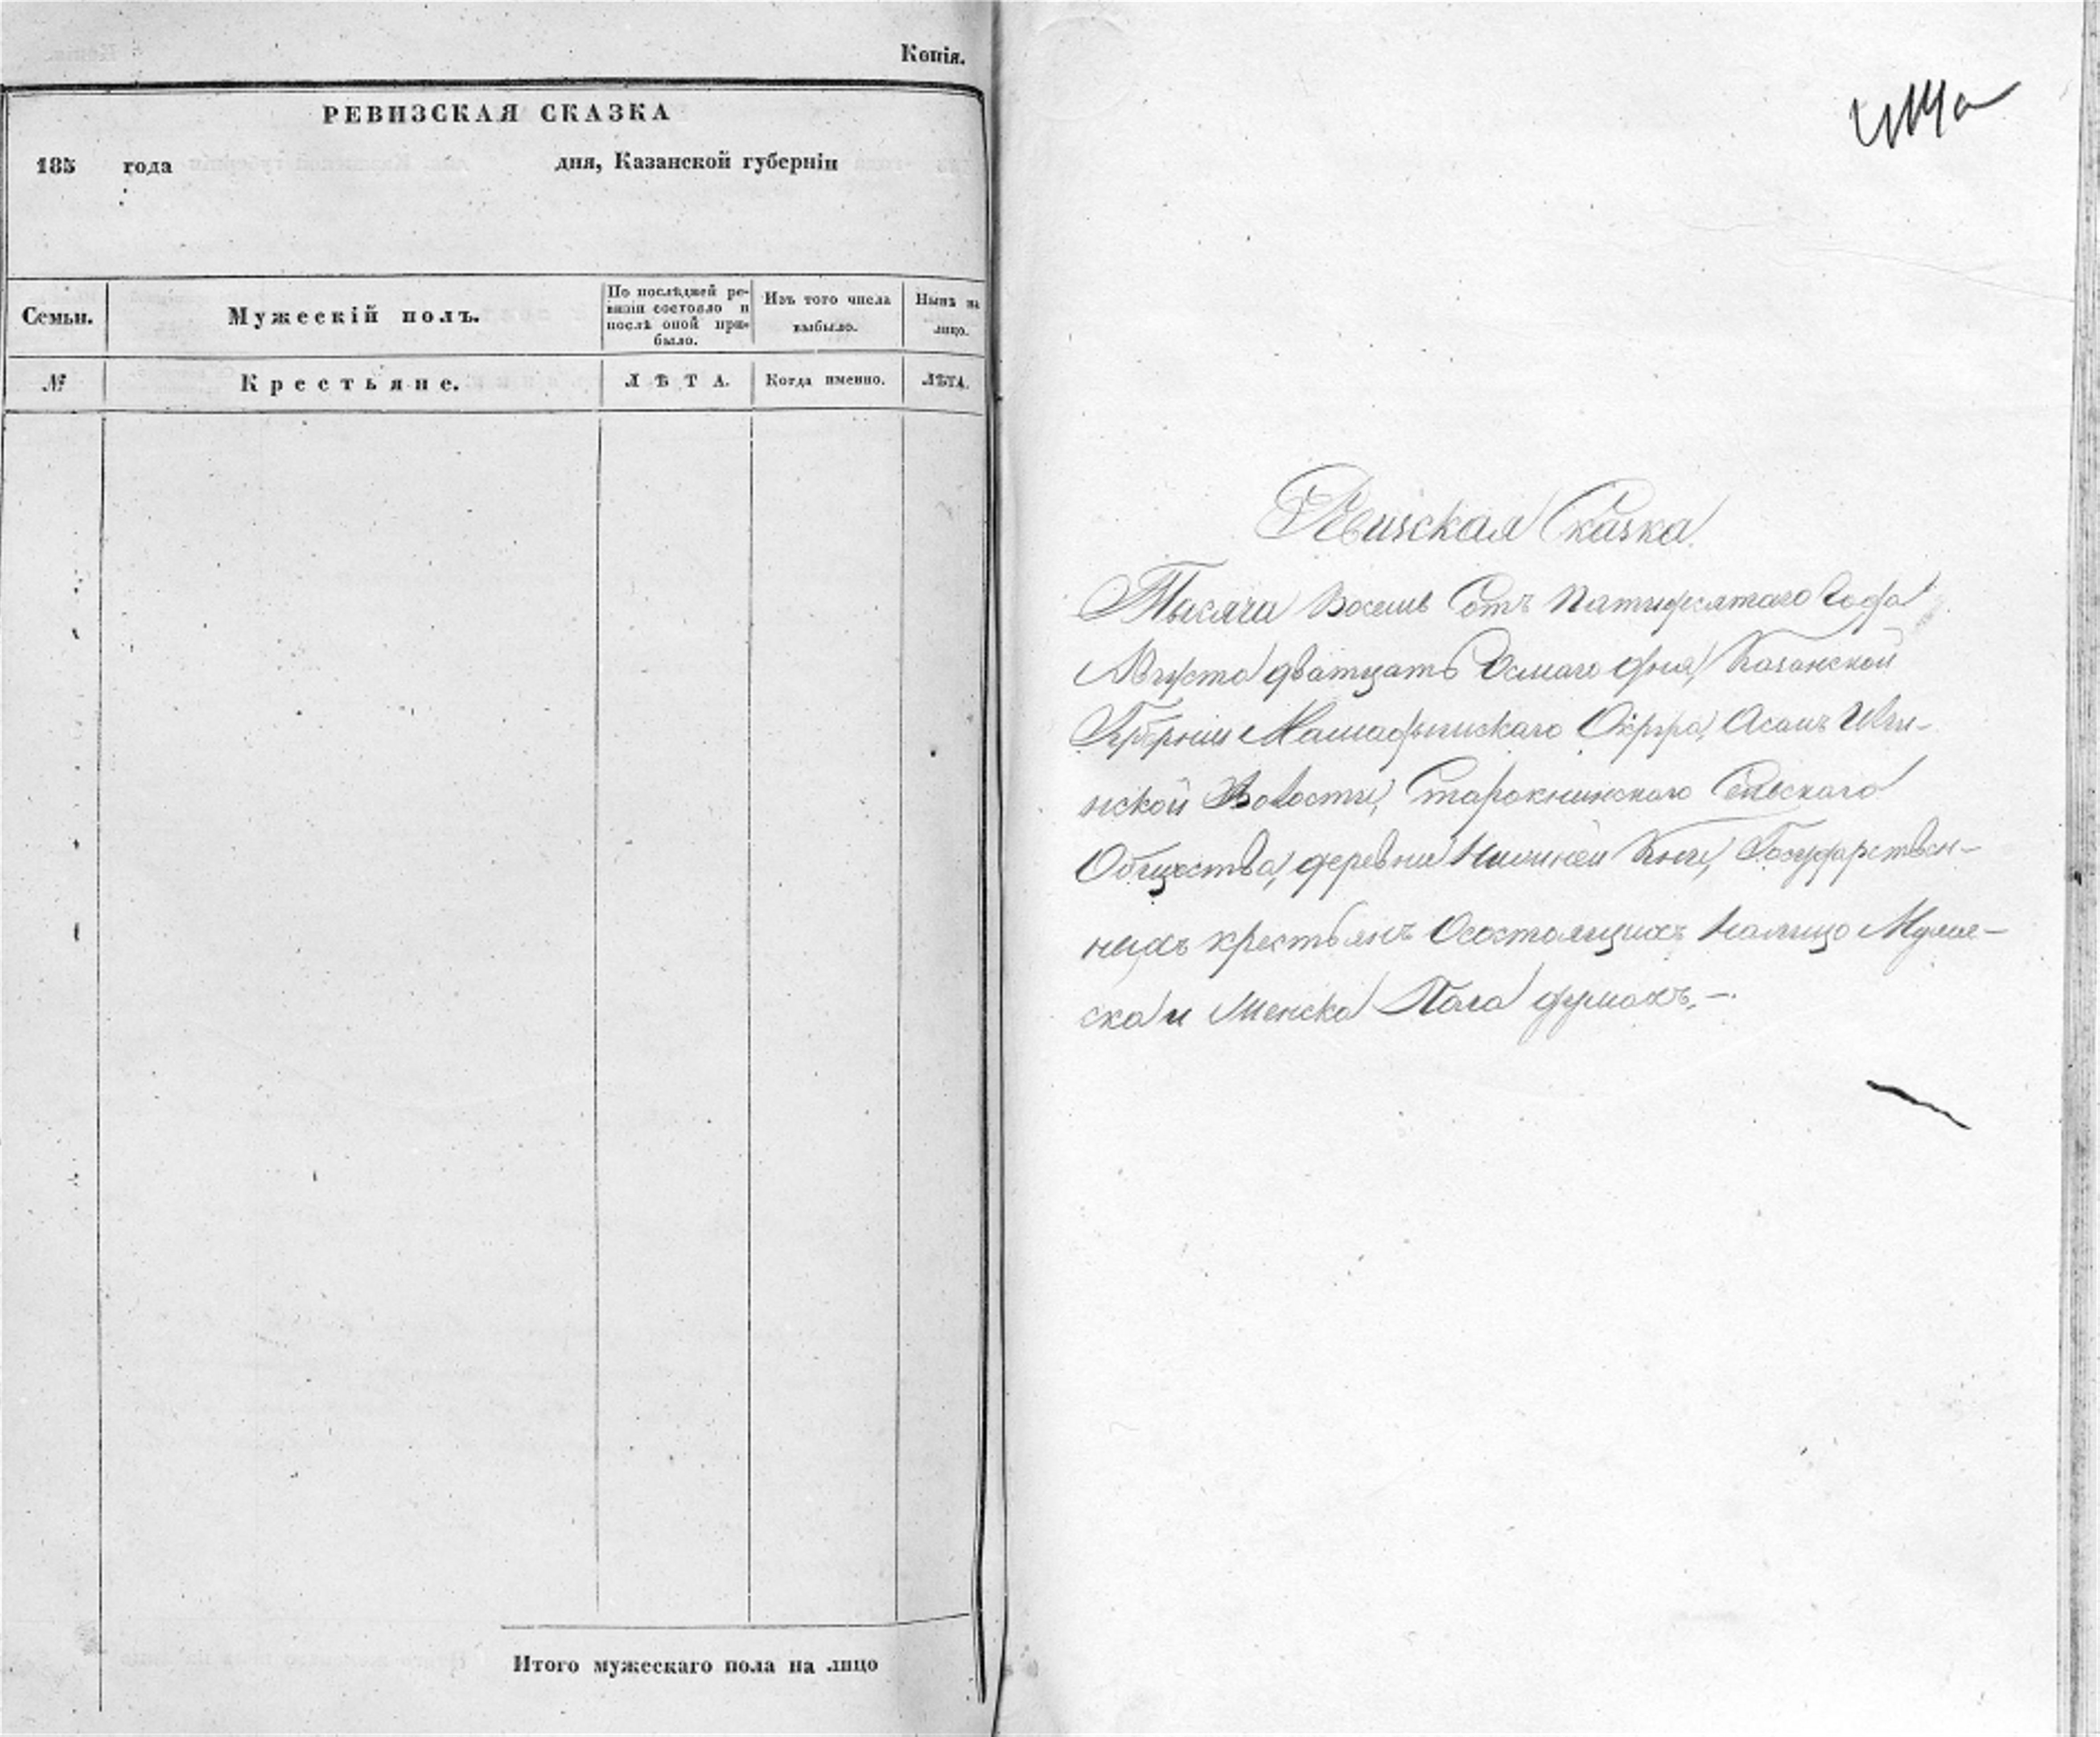 Копія.
РЕВИЗСКАЯ СКАЗКА
185 года дня, Казанской губерніи
Семьи. Мужескій полъ. По послѣдней ре- Изъ того числа Нынѣ на
визіи состояло и
послѣ оной при- выбыло. лицо.
было.
№ Крестьяне. ЛѢТА. Когда именно. ЛѢТА.
Итого мужескаго пола на лицо
Ревизская Сказка
Тысяча Восемь Сотъ Пятидесятаго Года
Августа дватцать Осмаго дня, Казанской
Губерніи Мамадышскаго Округа, Асанъ
нской Волости, Сельскаго
Общества, деревни Кни, Государствен-
ныхъ крестьянъ Осостоящихъ Налицо Муже-
ска и Женска Пола душахъ.—